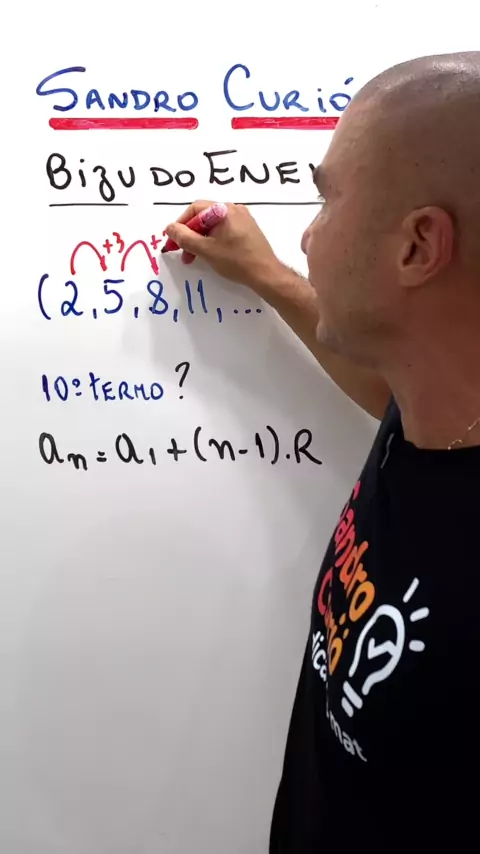 SANDRO CURIÓ
BIZU DO
+3 +
(2, 5, 8, 11, ...
10º TERMO ?
an = a1 + (n-1).R
Sandro
Curió
mat